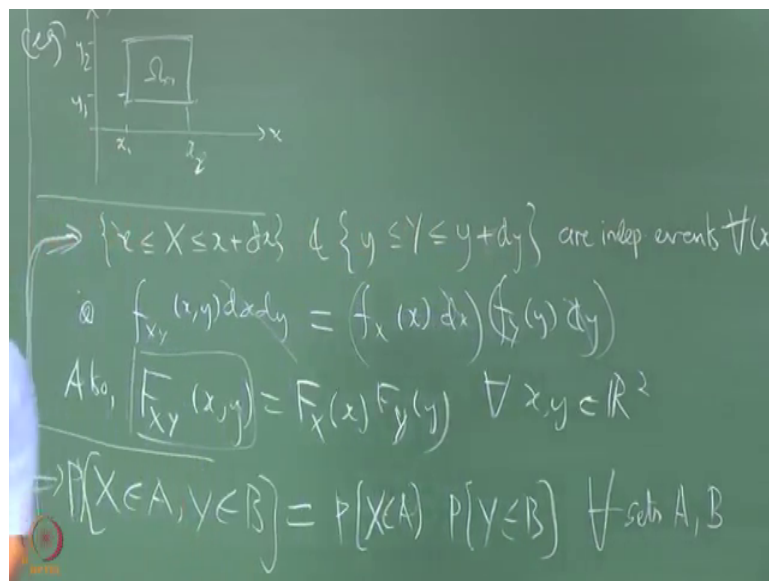 (eg)
y₂
Ω
y₁
x₁ x₂ → x
→ {x ≤ X ≤ x+dx} & {y ≤ Y ≤ y+dy} are indep events ∀(x
f_XY (x,y) dx dy = (f_X (x) dx)(f_Y (y) dy)
Also, F_XY (x,y) = F_X (x) F_Y (y) ∀ x,y ∈ ℝ²
⇒ P[X∈A, Y∈B] = P[X∈A) P[Y∈B] ∀ sets A, B
NPTEL